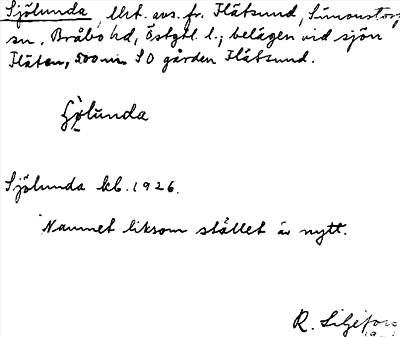 Sjölunda, lht. avs. fr. Flätsund, Simonstorps
sn. Bråbo hd, Östgtl. l.; belägen vid sjön
Fläten, 500 m SO gården Flätsund.
Sjölunda kb. 1926.
Namnet liksom stället är nytt.
R. Liljefors